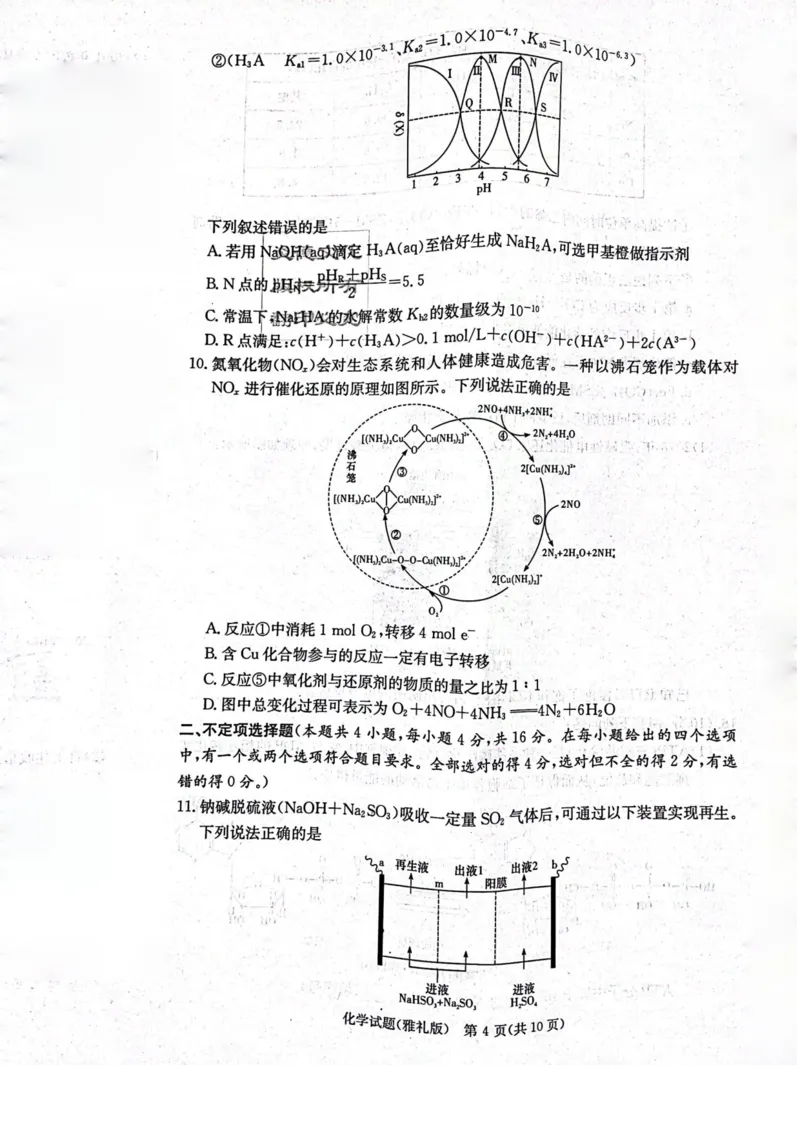 ②(H₃A K_a1=1.0×10^-3.1、K_a2=1.0×10^-4.7、K_a3=1.0×10^-6.3)
I II M III N IV
Q R S
δ(X)
1 2 3 4 5 6 7
pH
下列叙述错误的是
A. 若用 NaOH(aq)滴定 H₃A(aq)至恰好生成 NaH₂A,可选甲基橙做指示剂
B. N 点的 pH_N=(pH_R+pH_S)/2=5.5
C. 常温下,Na₂HA 的水解常数 K_h2的数量级为 10^-10
D. R 点满足:c(H⁺)+c(H₃A)>0.1 mol/L+c(OH⁻)+c(HA²⁻)+2c(A³⁻)
10. 氮氧化物(NOₓ)会对生态系统和人体健康造成危害。一种以沸石笼作为载体对
NOₓ 进行催化还原的原理如图所示。下列说法正确的是
2NO+4NH₃+2NH₄⁺
[(NH₃)₂Cu O O Cu(NH₃)₂]²⁺
④
2N₂+4H₂O
沸石笼
③
2[Cu(NH₃)₄]²⁺
[(NH₃)₂Cu O O Cu(NH₃)₂]²⁺
2NO
⑤
②
2N₂+2H₂O+2NH₄⁺
[(NH₃)₂Cu-O-O-Cu(NH₃)₂]²⁺
2[Cu(NH₃)₂]⁺
①
O₂
A. 反应①中消耗 1 mol O₂,转移 4 mol e⁻
B. 含 Cu 化合物参与的反应一定有电子转移
C. 反应⑤中氧化剂与还原剂的物质的量之比为 1∶1
D. 图中总变化过程可表示为 O₂+4NO+4NH₃══4N₂+6H₂O
二、不定项选择题(本题共 4 小题,每小题 4 分,共 16 分。在每小题给出的四个选项
中,有一个或两个选项符合题目要求。全部选对的得 4 分,选对但不全的得 2 分,有选
错的得 0 分。)
11. 钠碱脱硫液(NaOH+Na₂SO₃)吸收一定量 SO₂ 气体后,可通过以下装置实现再生。
下列说法正确的是
a 再生液 出液1 出液2 b
m 阳膜
进液 进液
NaHSO₃+Na₂SO₃ H₂SO₄
化学试题(雅礼版) 第 4 页(共 10 页)